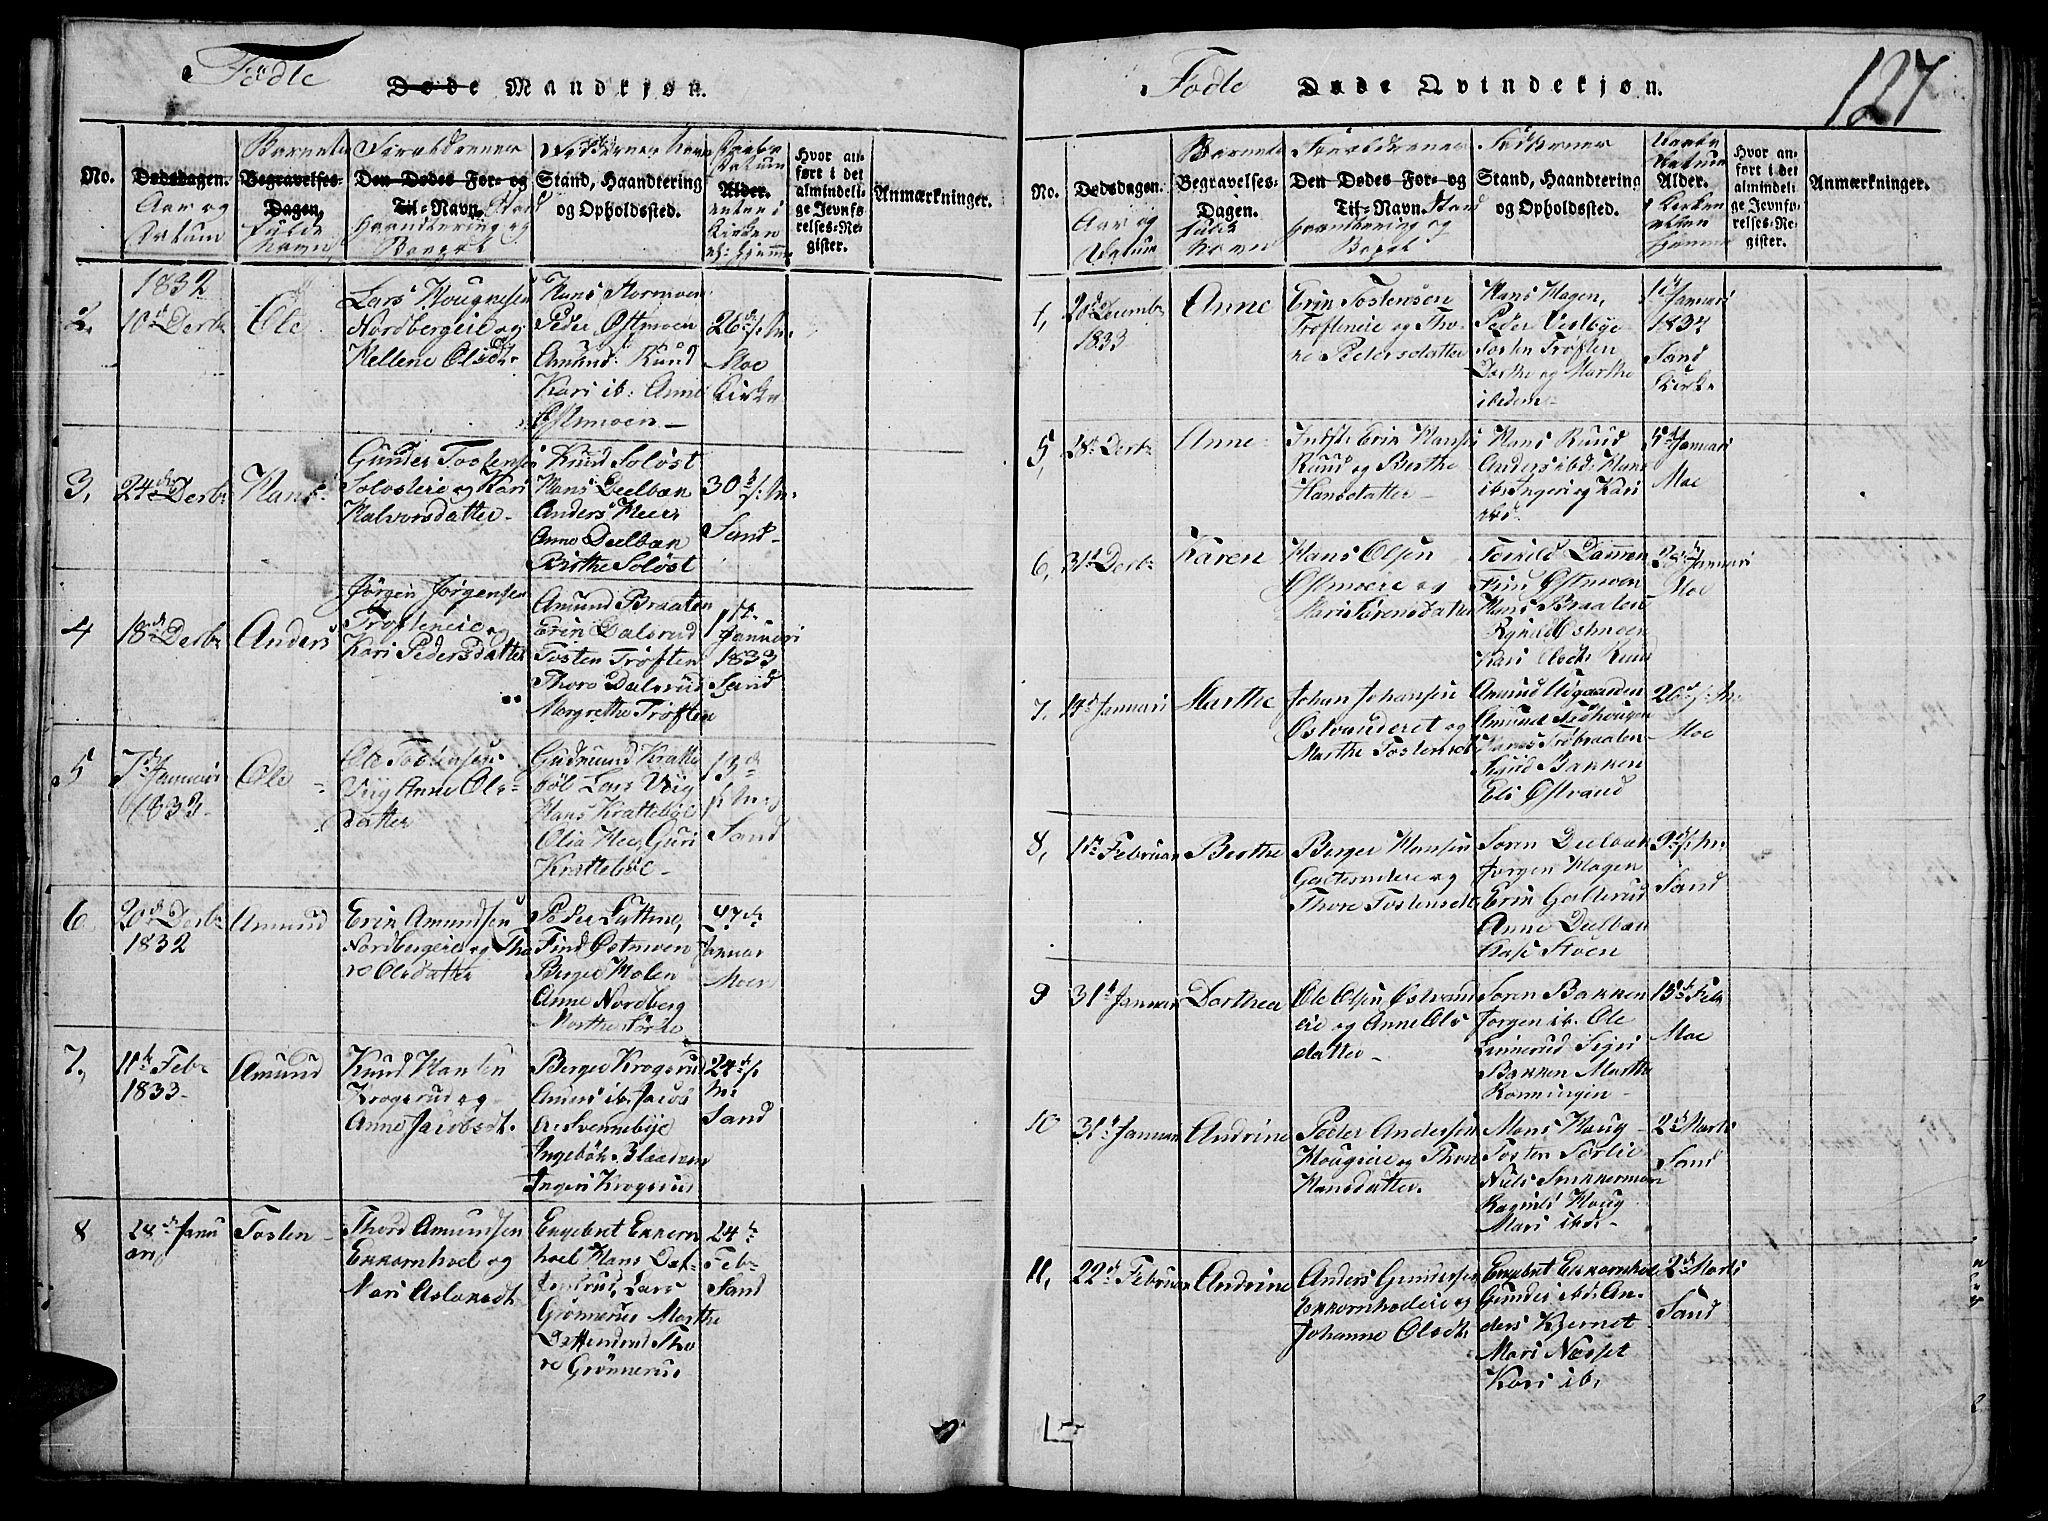 Fødte
Døde Mandkjøn.
No.
Dødsdagen.
Aar og
Datum
Barnets
Begravelses-
Dagen,
fulde
Navn
Forældrenes
Den Dødes For- og
Til-Navn. Stand
Haandtering og
Bopæl
Faddernes Navn
Stand, Haandtering
og Opholdssted.
Daabs
Datum
Alder.
enten i
Kirken
el: hjemme
Hvor an-
ført i det
almindeli-
ge Jevnfø-
relses-Re-
gister.
Anmærkninger.
2.
1832
10de Decbr
Ole
Lars Haugnesen
Nordbergeie og
Hellene Olsdtr
Hans Mormoen
Peder Østmoen
Amund Ruud
Kari ib: Anne
Østmoen
26de s: M:
Moe
Kirke
3,
24de Decbr
Hans
Gunder Tostensen
Soløsteie og Kari
Halvorsdatter
Knud Soløst
Hans Deelbæn
Anders Heer
Anne Deelbæn
Birthe Soløst
30de s: M:
Sand
4
18de Decbr
Anders
Jørgen Jørgensen
Trøfteneie og
Kari Pedersdatter
Amund Braaten
Erik Dalsrud
Tosten Trøften
Thore Dalsrud
Margrethe Trøften
1ste
Januari
1833
Sand
5
7de Januari
1833
Ole
Ole Tostensen
Viig Anne Ols-
datter
Gudmund Kratte
böl Lars Viig
Hans Krattebøl
Olia Hee, Guri
Krattebøl
13de
s: M:
Sand
6
20de Decbr
1832
Amund
Erik Amundsen
Nordbergeie og Tho
re Olsdatter
Peder
Find Østmoen
Berger Holen
Anne Nordberg
Marthe
Januar
Moe
7,
11te Febr
1833
Amund
Knud Hansen
Krogsrud og
Anne Jacobsdt.
Berger Krogsrud
Anders ib. Jacob
Svennebye
Ingebör Blaadam
Ingeri Krogsrud
24de s:
M:
Sand
8
28de Janu
ari
Tosten
Thord Amundsen
Ekkornhoel og
Mari Aslaksdt.
Engebret Ekkorn
hoel Hans Def-
Lars
Grønnerud Marthe
Tho
re Grønnerud
24de
Febr
Sand
127
Fødte
Døde Qvindekjøn.
No.
Dødsdagen.
Aar og
Datum
Barnets
Begravelses-
Dagen.
fulde
Navn
Forældrenes
Den Dødes For- og
Til-Navn. Stand
Haandtering og
Bopæl
Faddernes
Stand, Haandtering
og Opholdssted.
Daabs
Datum
Alder.
i Kirken
eller
hjemme
Hvor an-
ført i det
almindeli-
ge Jevnfø-
relses-Re-
gister.
Anmærkninger.
Decembr
1833
Anne
Erik Tostensen
Trøfteneie og Tho-
re Pedersdatter
Hans Hagen,
Peder Vestbye
Tosten Trøften
Dorthe og Marthe
ibidem
1ste Januari
Sand
Kirke
5,
18de Decbr
Anne
Indst: Erik Hansen
Ruud og Berthe
Hansdatter
Hans Ruud
Anders ibd: Hans
ib: Ingeri og Kari
ibd:
5te Januari
Moe
6,
31te Decbr
Karen
Hans Olsen
Østmoeie og
Mari Sørensdatter
Torkild Dammen
Find Østmoen
Hans Braaten
Ragnild Østmoen
Kari Olsdtr Ruud
Januari
Moe
7.
14de Januari
Marthe
Johan Johansen
Østranderet og
Marthe Tostensdt
Amund Nygaarden
Amund
Hans Trøbraaten
Sigrid Bakken
Eli Østrand
20de s: M:
Moe
8,
1ste Februar
Berthe
Berger Hansen
Galterudeie og
Thore Tostensdt
Søren Deelbæn
Jørgen Hagen
Erik Galterud
Anne Deelbæn
Kari Stoen
9de s: M:
Sand
9
31te Januar
Dorthea
Ole Olsen Østrand
eie og Anne Ols
datter
Søren Bakken
Jørgen ib. Ole
Linnerud Sigri
Bakken Marthe
Rønningen
13de Feb
Moe
10
31te Januar
Andrine
Peder Andersen
Haugseie og Thore
Hansdatter.
Mons Haug
Tosten Sørlie
Niels Snekkermoen
Ragnild Haug
Mari ibd:
2de Marti
Sand
11,
22de Februar
Andrine
Anders Gundersen
Ekkornhoeleie og
Johanne Olsdt.
Engebret Ekkornhoel
Gunder ib. An-
ders Kjernet
Mari Næsset
Kari ib:
2de Marti
Sand